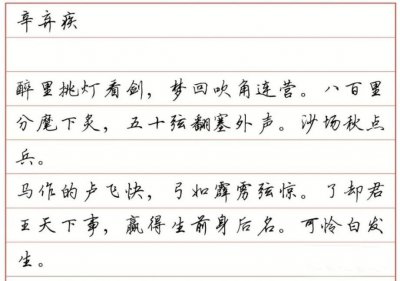 辛弃疾
醉里挑灯看剑，梦回吹角连营。八百里
分麾下炙，五十弦翻塞外声。沙场秋点
兵。
马作的卢飞快，弓如霹雳弦惊。了却君
王天下事，赢得生前身后名。可怜白发
生。